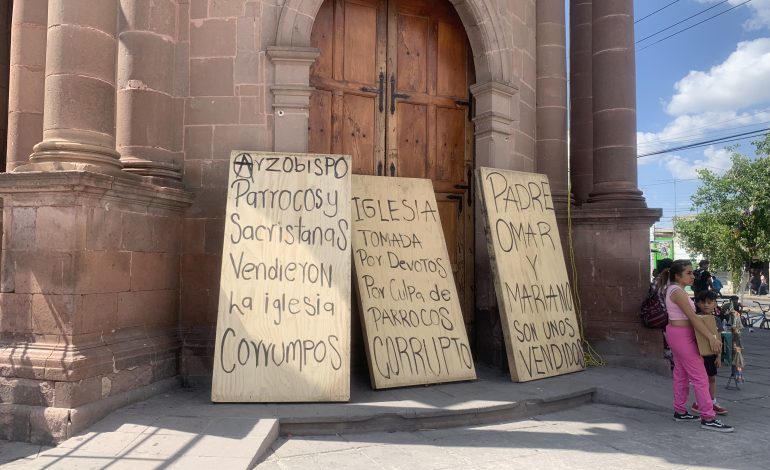 Arzobispo
Parrocos y
Sacristanas
Vendieron
La iglesia
Corrumpos
IGLESIA
TOMADA
Por Devotos
Por Culpa de
PARROCOS
CORRUPTO
PADRE
OMAR
Y
MARIANO
SON UNOS
VENDIDO